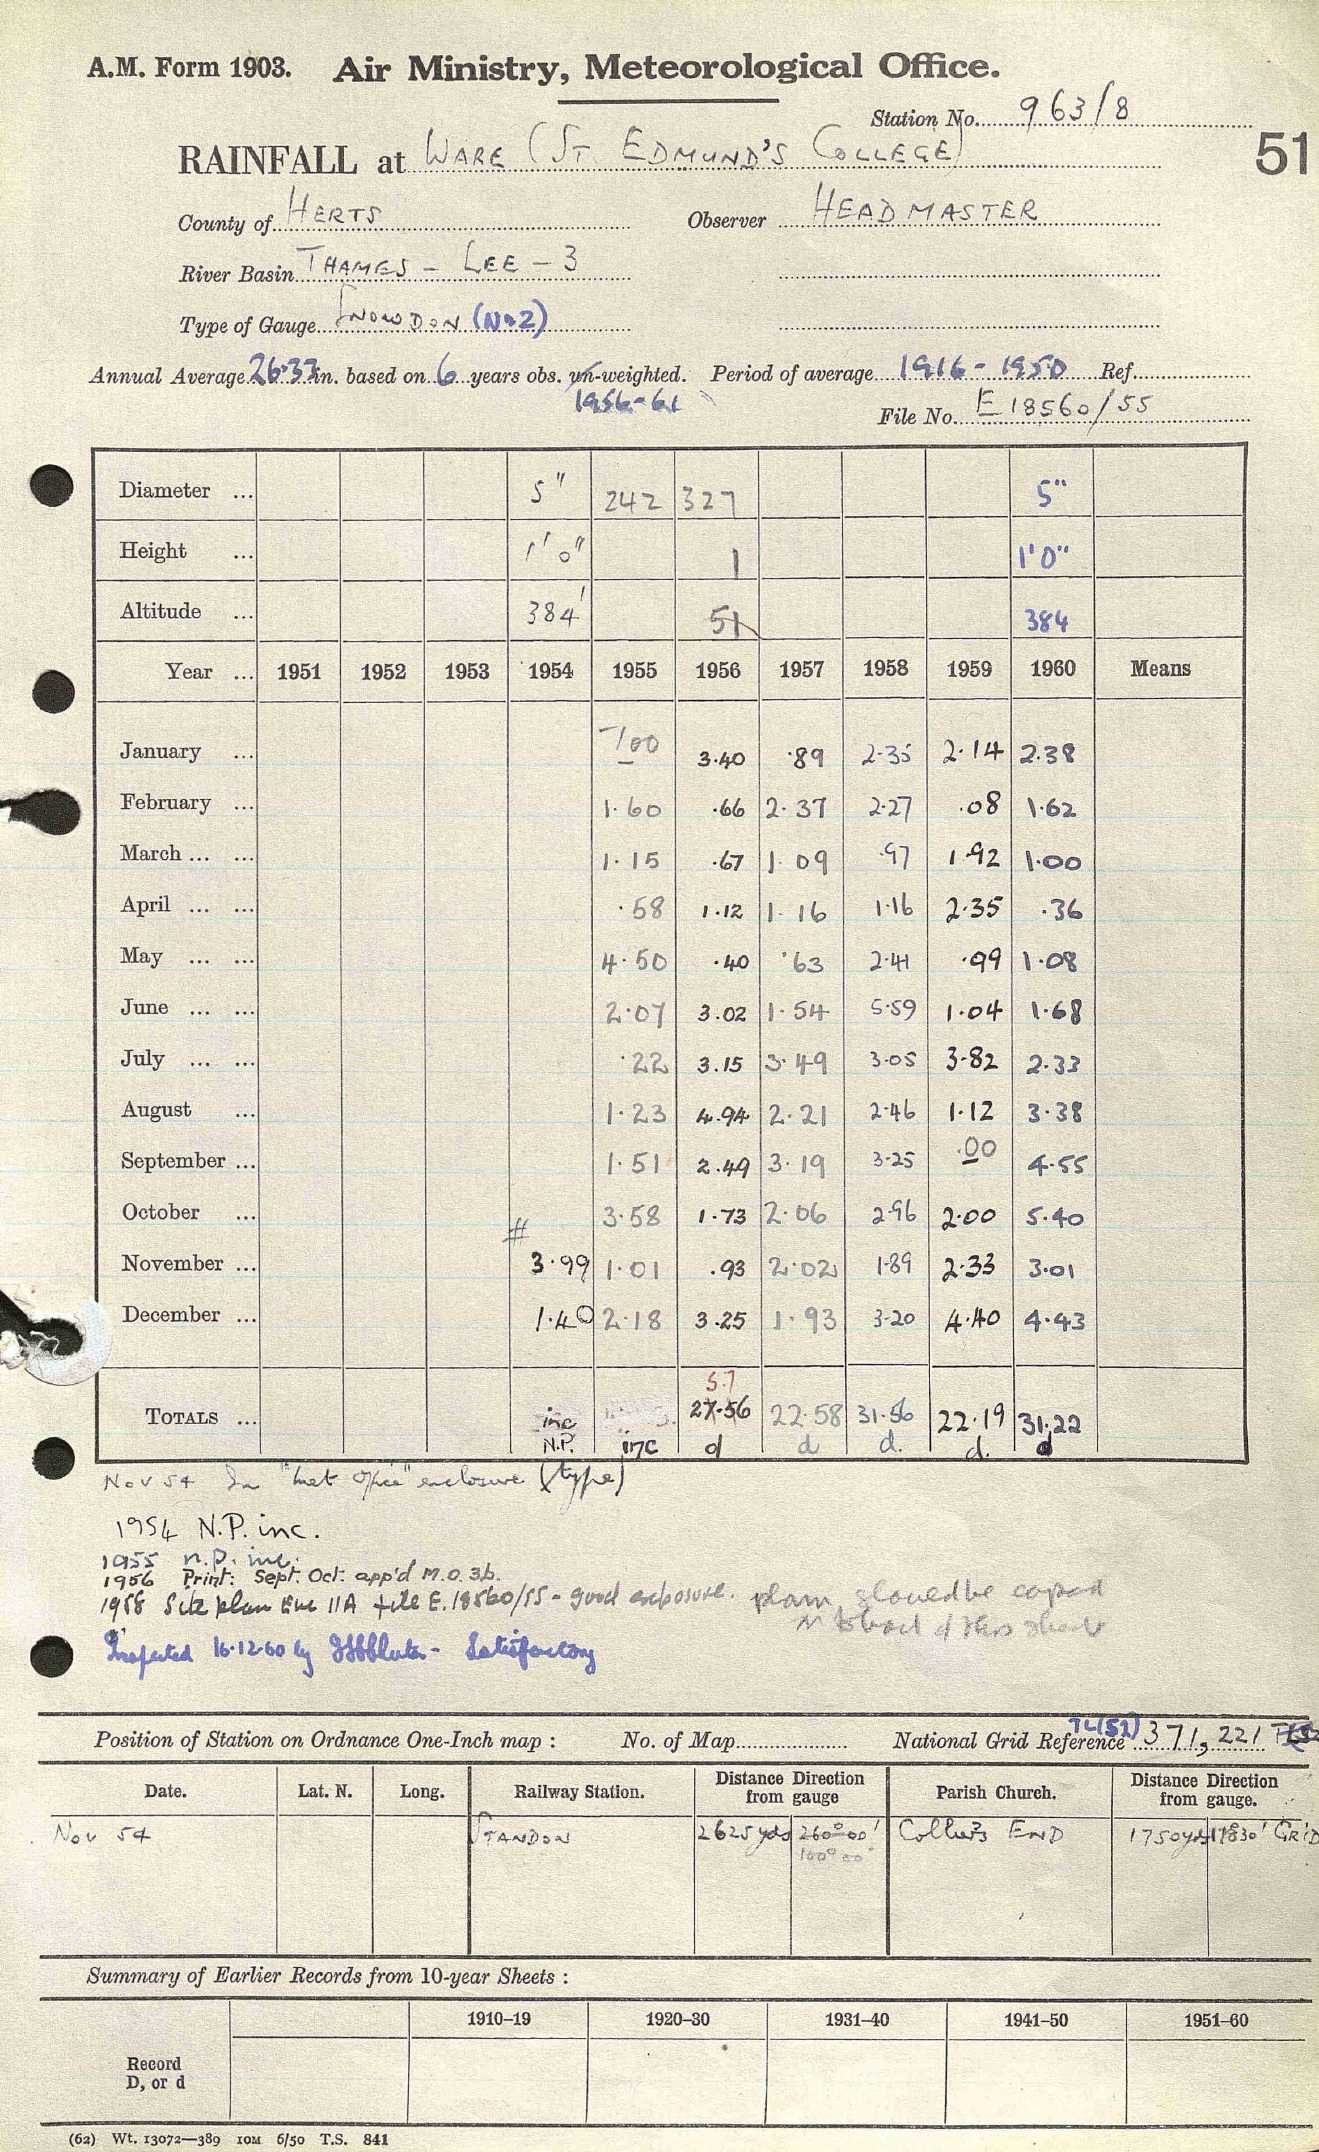 A.M. Form 1903. Air Ministry, Meteorological Office.
Station No. 963/8
RAINFALL at WARE (ST. EDMUND'S COLLEGE)
51
County of HERTS Observer HEADMASTER
River Basin THAMES - LEE - 3
Type of Gauge SNOWDON (No2)
Annual Average 26.33 in. based on 6 years obs. un-weighted. Period of average 1916-1950 Ref.
1956-61
File No. E18560/55
Diameter ... 5" 242 327 5"
Height ... 1'0" 1 1'0"
Altitude ... 384' 51 384
Year ... 1951 1952 1953 1954 1955 1956 1957 1958 1959 1960 Means
January ... 00 3.40 .89 2.35 2.14 2.38
February ... 1.60 .66 2.37 2.27 .08 1.62
March ... ... 1.15 .67 1.09 .97 1.92 1.00
April ... ... .58 1.12 1.16 1.16 2.35 .36
May ... ... 4.50 .40 .63 2.41 .99 1.08
June ... ... 2.07 3.02 1.54 5.59 1.04 1.68
July ... ... .22 3.15 3.49 3.05 3.82 2.33
August ... 1.23 4.94 2.21 2.46 1.12 3.38
September ... 1.51 2.49 3.19 3.25 .00 4.55
October ... 3.58 1.73 2.06 2.96 2.00 5.40
#
November ... 3.99 1.01 .93 2.02 1.89 2.33 3.01
December ... 1.40 2.18 3.25 1.93 3.20 4.40 4.43
5.7
TOTALS ... inc 27.56 22.58 31.56 22.19 31.22
N.P. inc d d d. d. d
Nov 54 In "Met Office" enclosure (type)
1954 N.P. inc.
1955 n.p. inc.
1956 Print: Sept. Oct: app'd M.O.3b.
1958 Site plan Enc 11A file E.18560/55 - good exposure. plan should be copied
to back of this sheet
Inspected 16.12.60 by - Satisfactory
Position of Station on Ordnance One-Inch map : No. of Map National Grid Reference TL(52) 371, 221
Date. Lat. N. Long. Railway Station. Distance Direction from gauge Parish Church. Distance Direction from gauge.
Nov 54 STANDON 2625 yds 260°00' Colliers END 1750 yds 178°30' GRID
100°00'
Summary of Earlier Records from 10-year Sheets :
1910–19 1920–30 1931–40 1941–50 1951–60
Record
D, or d
(62) Wt. 13072—389 10M 6/50 T.S. 841